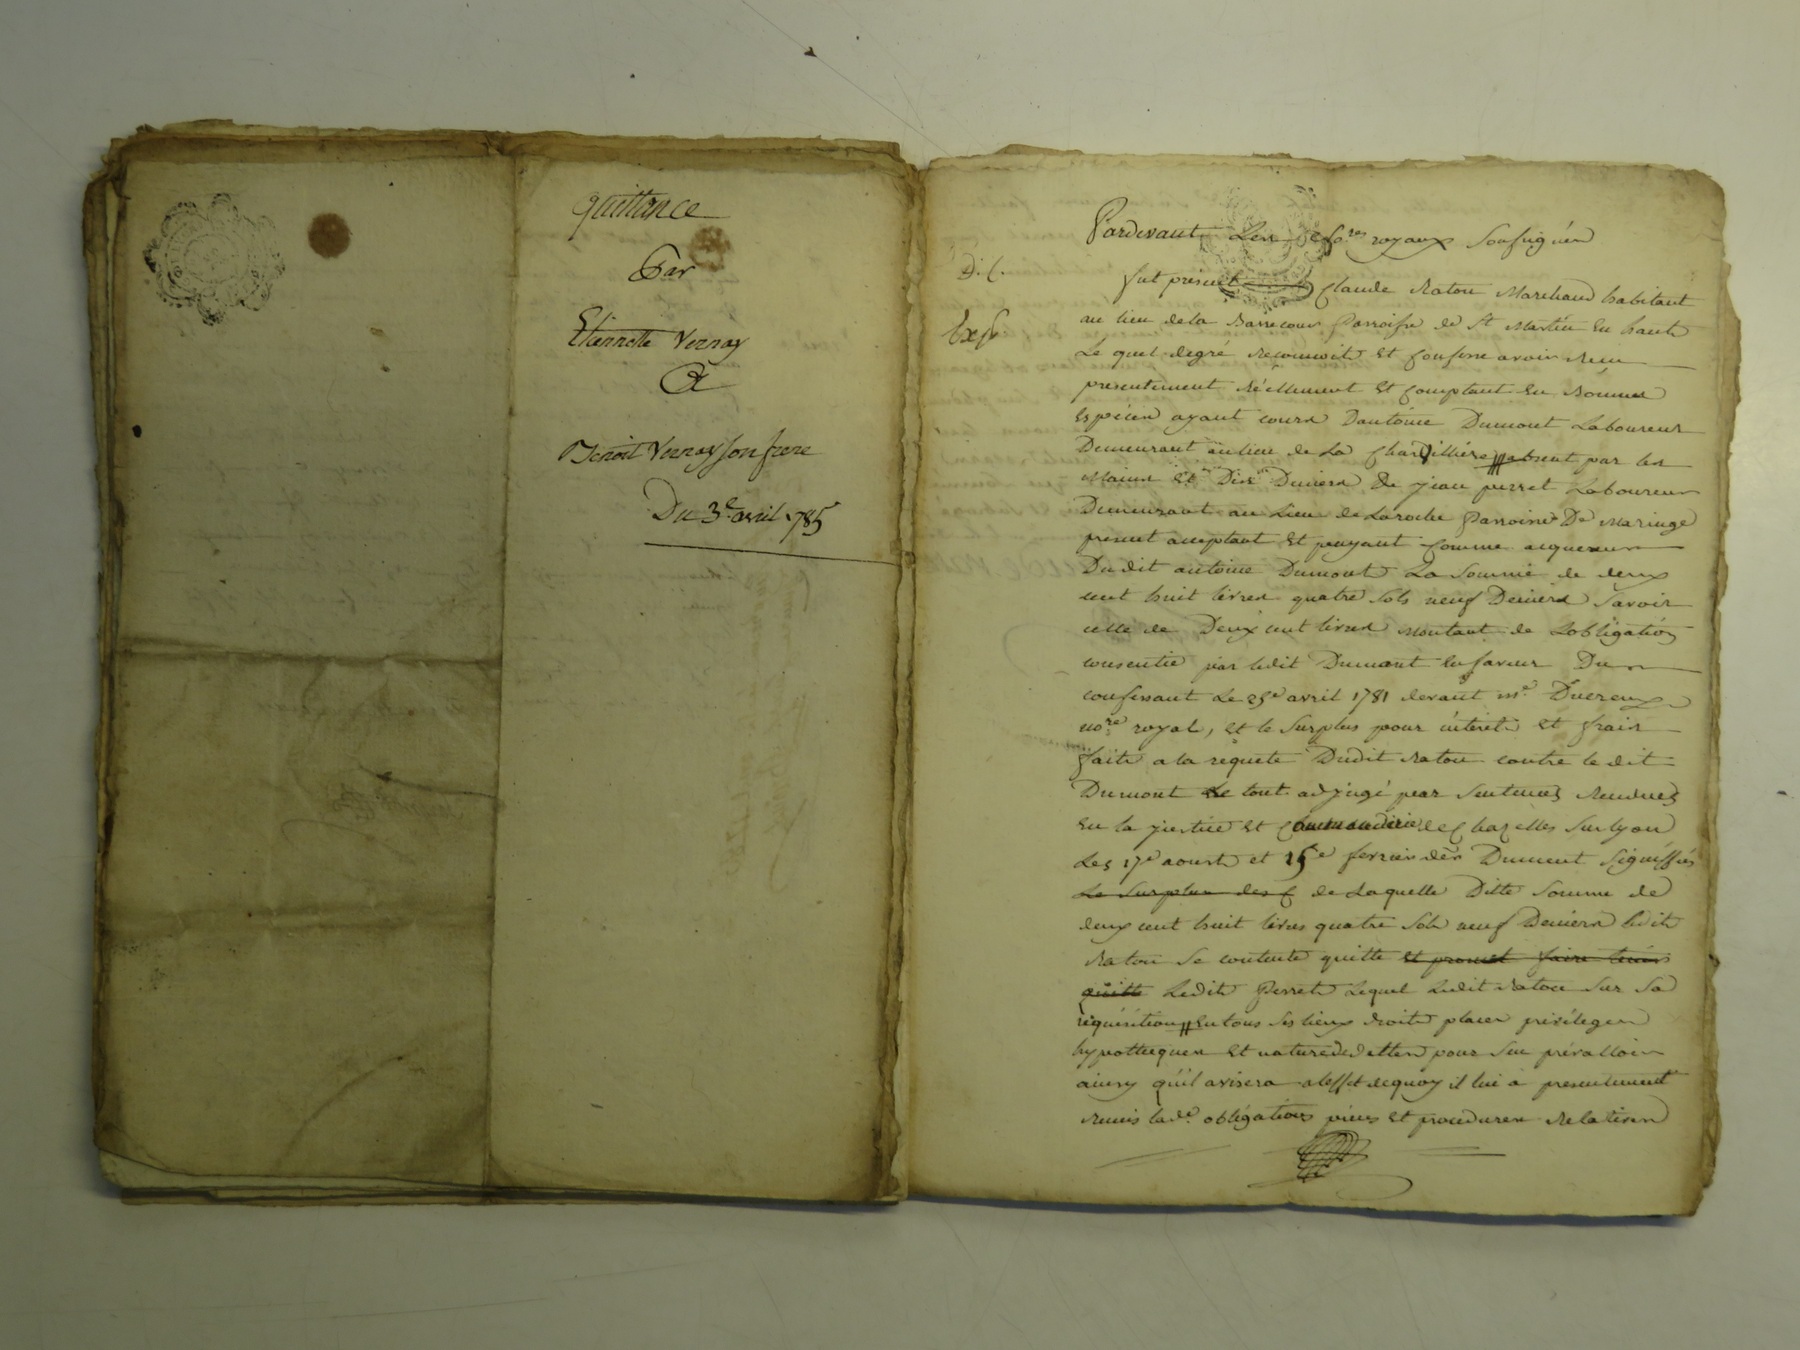 quittance
Par
Etiennette Vernay
A
Benoit Vernay son frere
Du 3e. avril 1785
Pardevant Les no.res royaux soussignés
D. C.
fut present Claude Raton Marchand habitant
Exp.
au lieu de la Barrecour Parroisse de St Martin en haut
Le quel degré reconnoit et confesse avoir reçu
presentement réellement et comptant en bonnes
espèces ayant cours Dantoine Dumont Laboureur
Demeurant au lieu de La absent par les
mains et Des Deniers de jean perret Laboureur
Demeurant au Lieu de Laroche Parroisse De Maringe
present acceptant et payant comme acquereur
Dudit antoine Dumont La somme de deux
cent huit livres quatre sols neuf Deniers savoir
celle de Deux cent livres montant de Lobligation
consentie par ledit Dumont en faveur Du
confessant Le 25e avril 1781 devant me. Ducreux
no.re royal, et le surplus pour intérêt et frais
faits a la requete Dudit raton contre le dit
Dumont Le tout adjugé par sentences rendues
en la justice et Commanderie de Chazelles sur lyon
Les 17e aoust et 15e fevrier der. Dument signiffiés
Le surplus des f de Laquelle Ditte somme de
deux cent huit livres quatre sols neuf Deniers ledit
raton se contente quitte et promet faire tenir
quitte Ledit Perret Lequel Ledit raton sur sa
requisition en tous ses lieux droits places privileges
hypotheques et nature de dettes pour sen prévalloir
ainsy qu'il avisera a leffet dequoy il lui a presentement
remis lad.e obligation pièces et procedures relatives